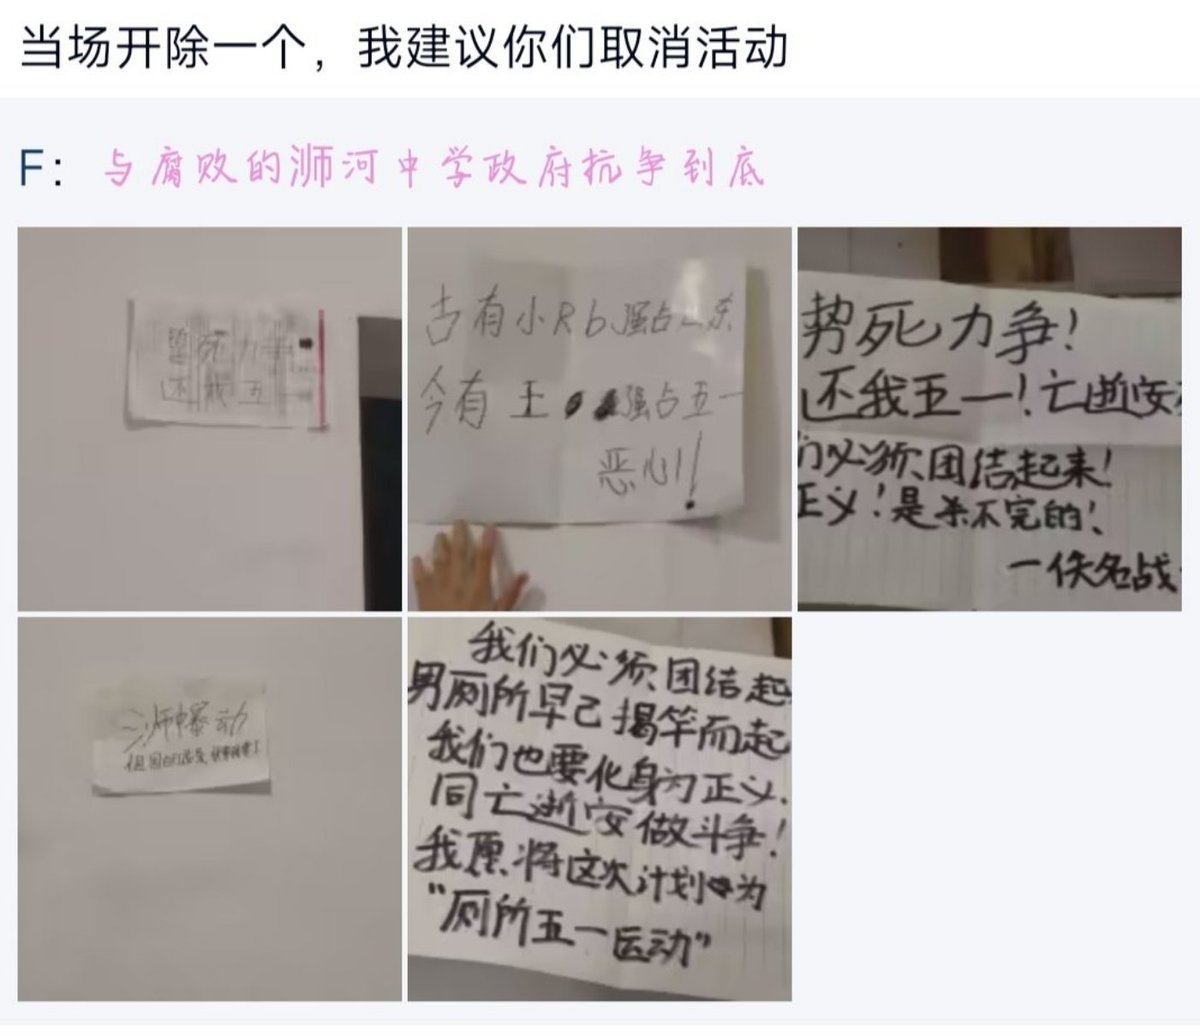 当场开除一个，我建议你们取消活动
F：与腐败的浉河中学政府抗争到底
死力争
还我五一
古有小Rb强占山东
今有王强占五一
恶心!
势死力争!
还我五一!亡逝安
们必须团结起来!
正义!是杀不完的!
一佚名战
三浉爆动
我们必须团结起
男厕所早已揭竿而起
我们也要化身为正义.
同亡逝安做斗争!
我愿将这次计划为
"厕所五一运动"